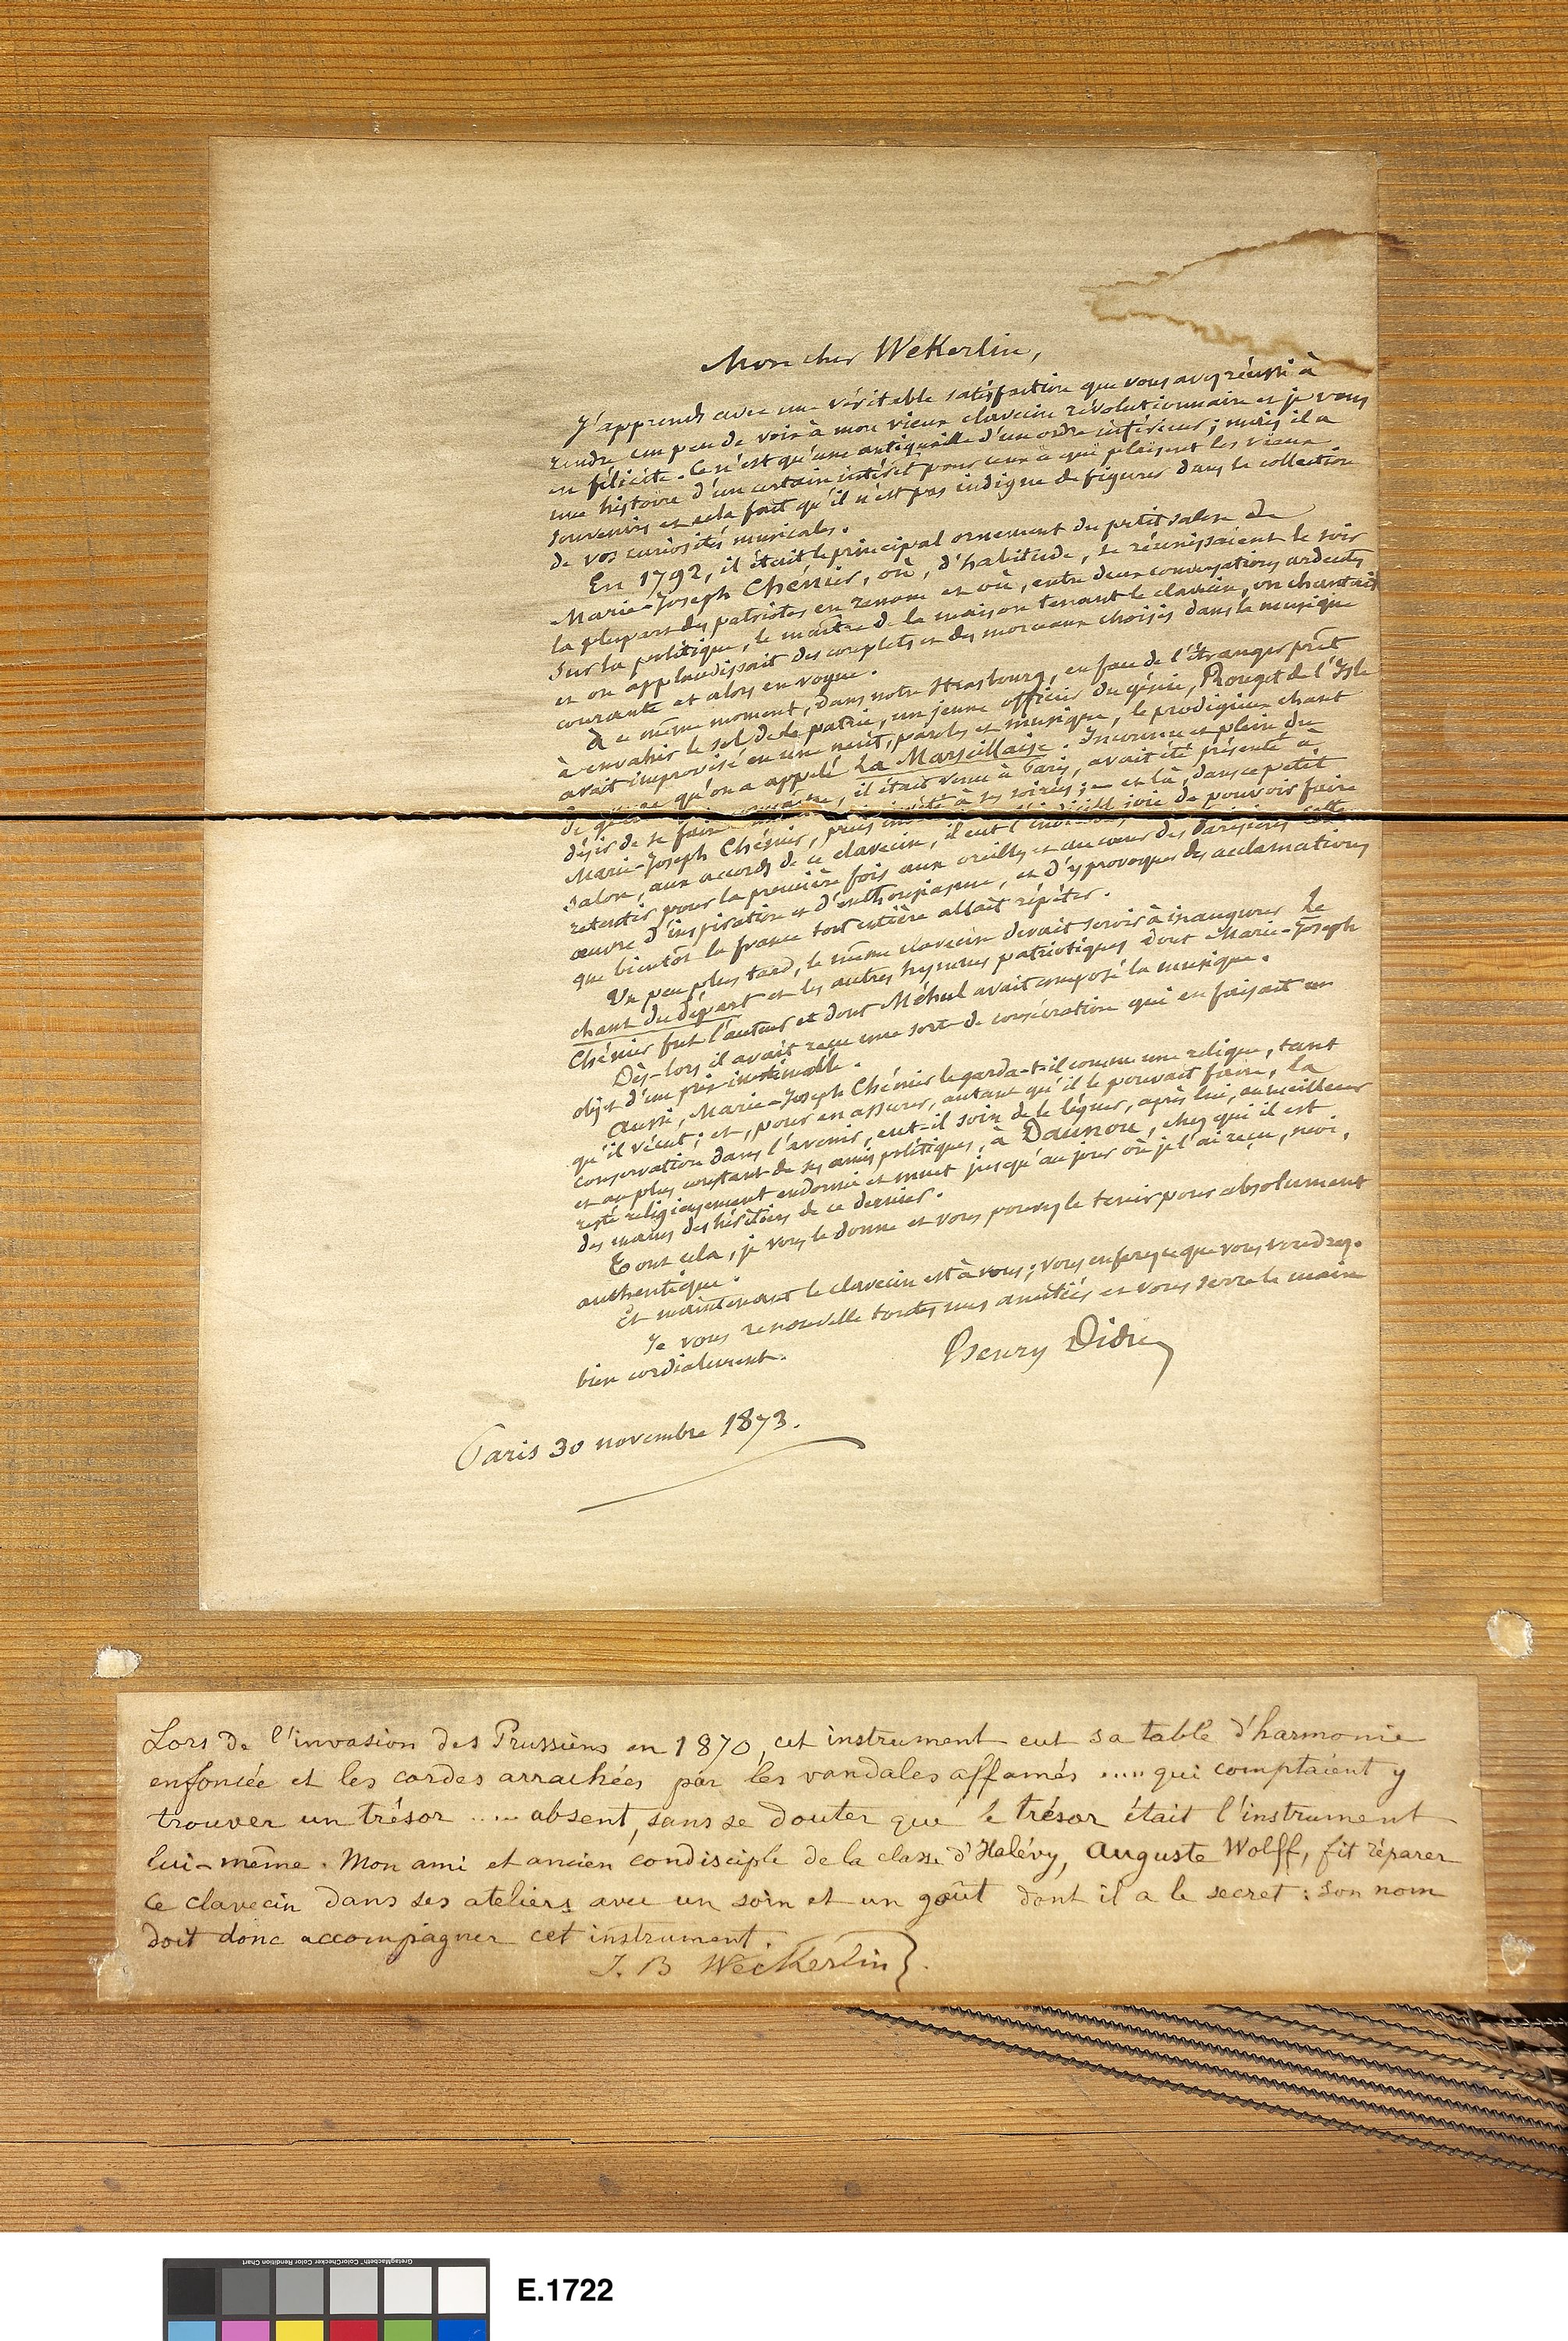 Mon cher Wekerlin,
J'apprends avec une véritable satisfaction que vous avez réussi à
rendre un peu de voix à mon vieux clavecin révolutionnaire et je vous
en félicite. Ce n'est qu'une antiquaille d'un ordre inférieur; mais il a
une histoire d'un certain intérêt pour ceux à qui plaisent les vieux
souvenirs et cela fait qu'il n'est pas indigne de figurer dans la collection
de vos curiosités musicales.
En 1792, il était le principal ornement du petit salon de
Marie-Joseph Chénier, où, d'habitude, se réunissaient le soir
la plupart des patriotes en renom et où, entre deux conversations ardentes
sur la politique, le maître de la maison tenant le clavecin, on chantait
et on applaudissait des couplets et des morceaux choisis dans la musique
courante et alors en vogue.
A ce même moment, dans notre Strasbourg, en face de l'étranger prêt
à envahir le sol de la patrie, un jeune officier du génie, Rouget de l'Isle
avait improvisé en une nuit, paroles et musique, le prodigieux chant
de guerre qu'on a appelé La Marseillaise. Inconnu et plein du
désir de se faire il était venu à Paris, avait été présenté à
Marie-Joseph Chénier, puis invité à ses soirées; – et là, dans ce petit
salon, aux accords de ce clavecin, il eut l'indicible joie de pouvoir faire
retentir pour la première fois aux oreilles et au cœur des Parisiens cette
œuvre d'inspiration et d'enthousiasme, et d'y provoquer des acclamations
que bientôt la france tout entière allait répéter.
Un peu plus tard, le même clavecin devait servir à inaugurer Le
chant du départ et les autres hymnes patriotiques dont Marie-Joseph
Chénier fut l'auteur et dont Méhul avait composé la musique.
Dès-lors il avait reçu une sorte de consécration qui en faisait un
objet d'un prix inestimable.
Aussi, Marie-Joseph Chénier le garda-t-il comme une relique, tant
qu'il vécut; et, pour en assurer, autant qu'il le pouvait faire, la
conservation dans l'avenir, eut-il soin de le léguer, après lui, au meilleur
et au plus constant de ses amis politiques, à Daunou, chez qui il est
resté religieusement endormi et muet jusqu'au jour où je l'ai reçu, moi,
des mains des héritiers de ce dernier.
Tout cela, je vous le donne et vous pouvez le tenir pour absolument
authentique.
Et maintenant le clavecin est à vous; vous en ferez ce que vous voudrez.
Je vous renouvelle toutes mes amitiés et vous serre la main
bien cordialement.
Henry Didier
Paris 30 novembre 1873.
Lors de l'invasion des Prussiens en 1870, cet instrument eut sa table d'harmonie
enfoncée et les cordes arrachées par les vandales affamés ..... qui comptaient y
trouver un trésor ..... absent, sans se douter que le trésor était l'instrument
lui-même. Mon ami et ancien condisciple de la classe d'Halévy, Auguste Wolff, fit réparer
ce clavecin dans ses ateliers avec un soin et un goût dont il a le secret: son nom
doit donc accompagner cet instrument.
J. B Weckerlin
GretagMacbeth™ ColorChecker Color Rendition Chart
E.1722